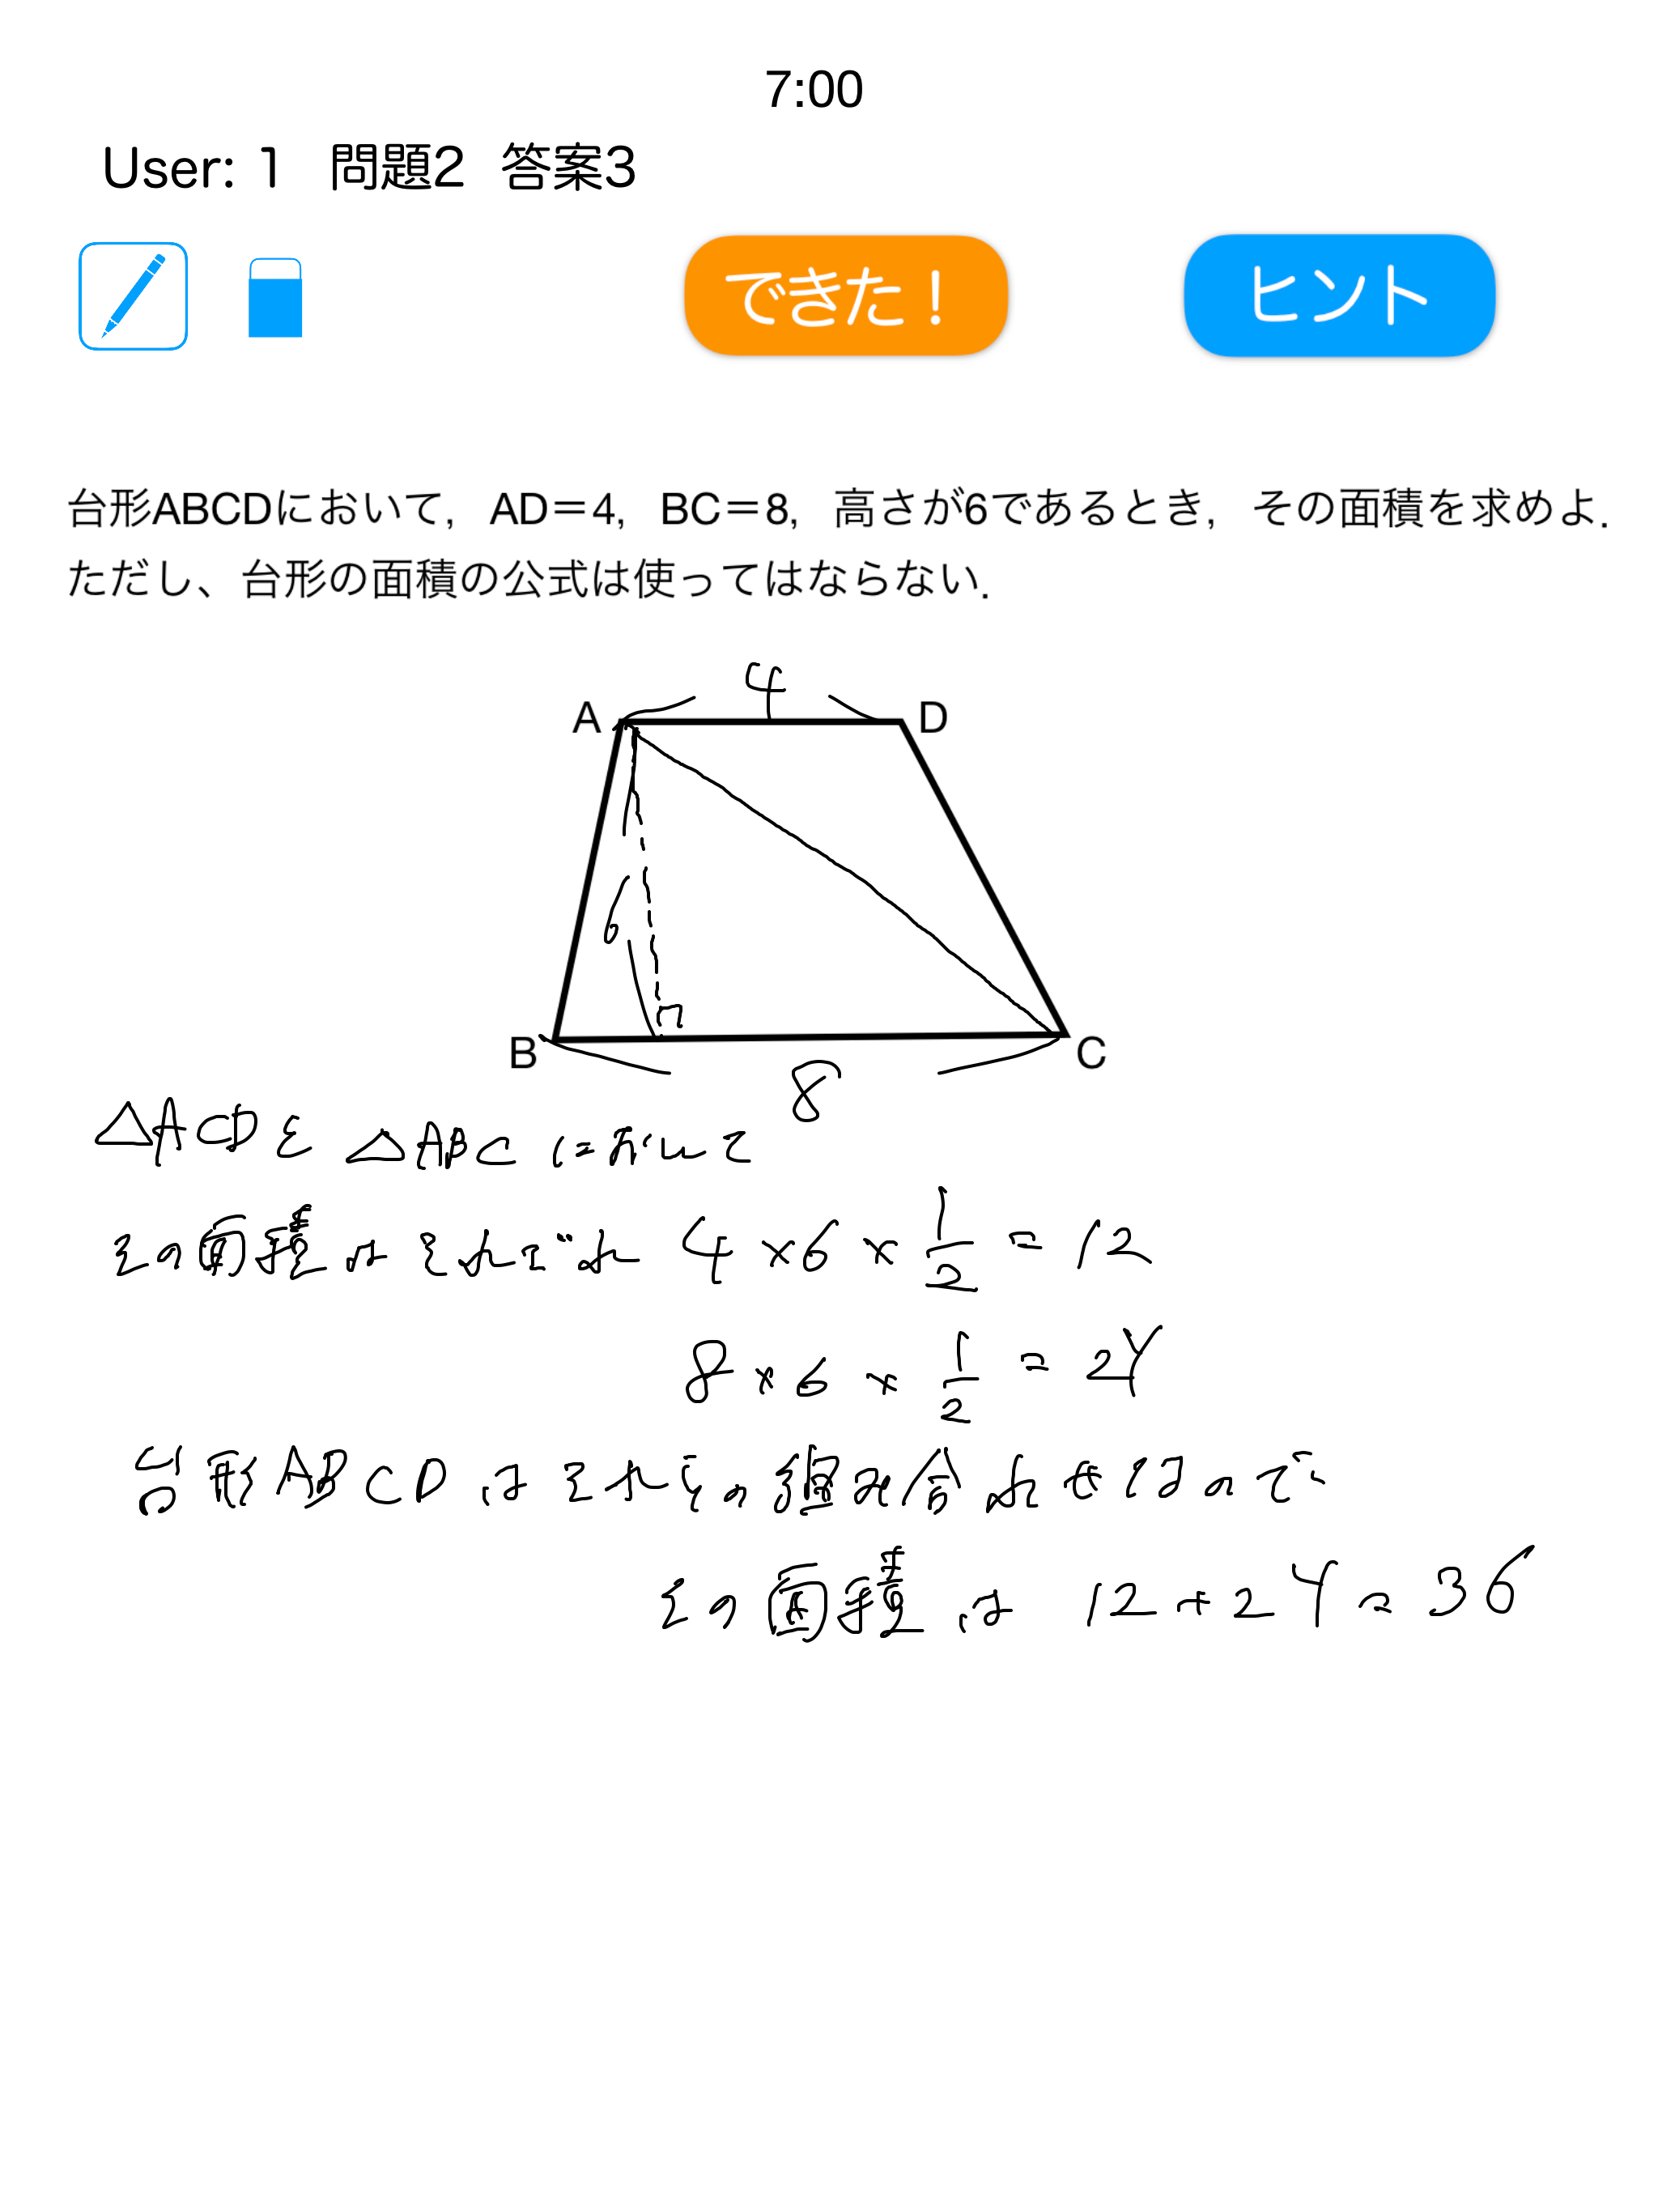 7:00
User: 1 問題2 答案3
できた！ ヒント
台形ABCDにおいて，AD＝4，BC＝8，高さが6であるとき，その面積を求めよ．
ただし、台形の面積の公式は使ってはならない．
4
A D
6
B C
8
△ACDと△ABCにおいて
その面積はそれぞれ 4×6×1/2=12
8×6×1/2=24
台形ABCDはそれらの組み合わせなので
その面積は 12+24=36